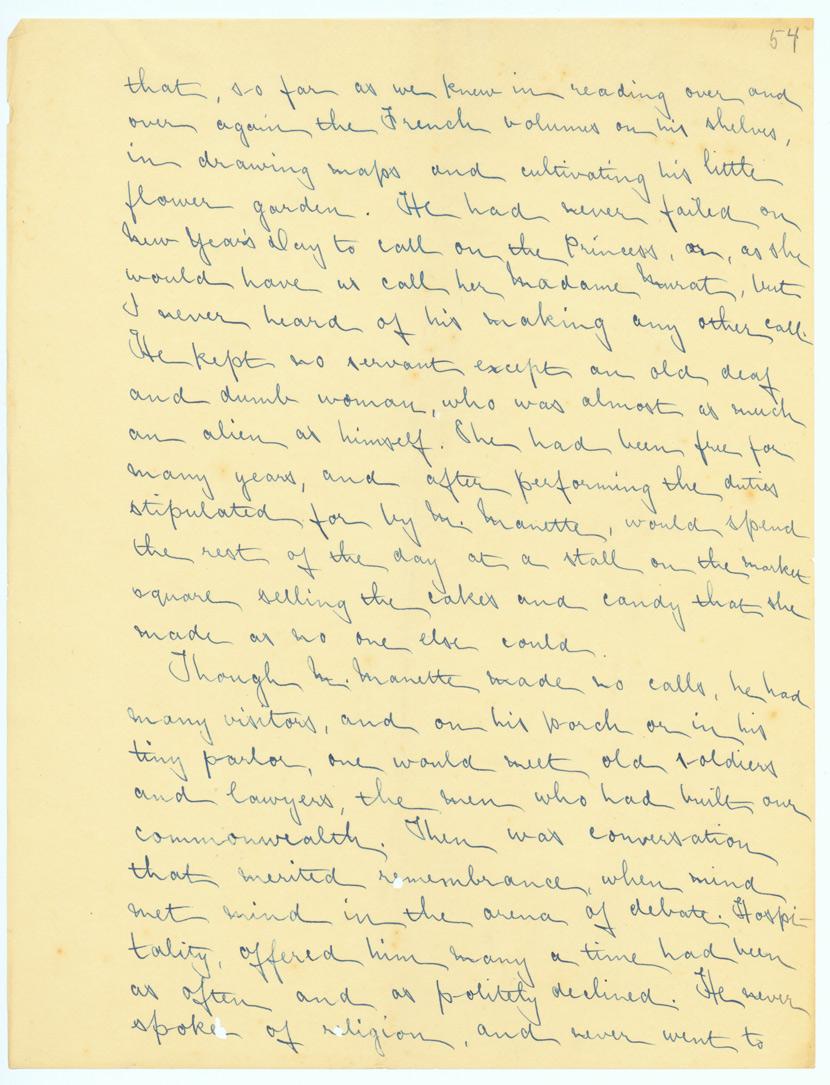 54
that, so far as we knew in reading over and
over again the French volumes on his shelves,
in drawing maps and cultivating his little
flower garden. He had never failed on
New Year's Day to call on the Princess, or, as she
would have us call her Madame Murat, but
I never heard of his making any other call.
He kept no servant except an old deaf
and dumb woman, who was almost as much
an alien as himself. She had been free for
many years, and after performing the duties
stipulated for by M. Manette, would spend
the rest of the day at a stall on the market
square selling the cakes and candy that she
made as no one else could.
Though M. Manette made no calls, he had
many visitors, and on his porch or in his
tiny parlor, one would meet old soldiers
and lawyers, the men who had built our
commonwealth. Then was conversation
that merited remembrance, when mind
met mind in the arena of debate. Hospi-
tality, offered him many a time had been
as often and as politely declined. He never
spoke of religion, and never went to